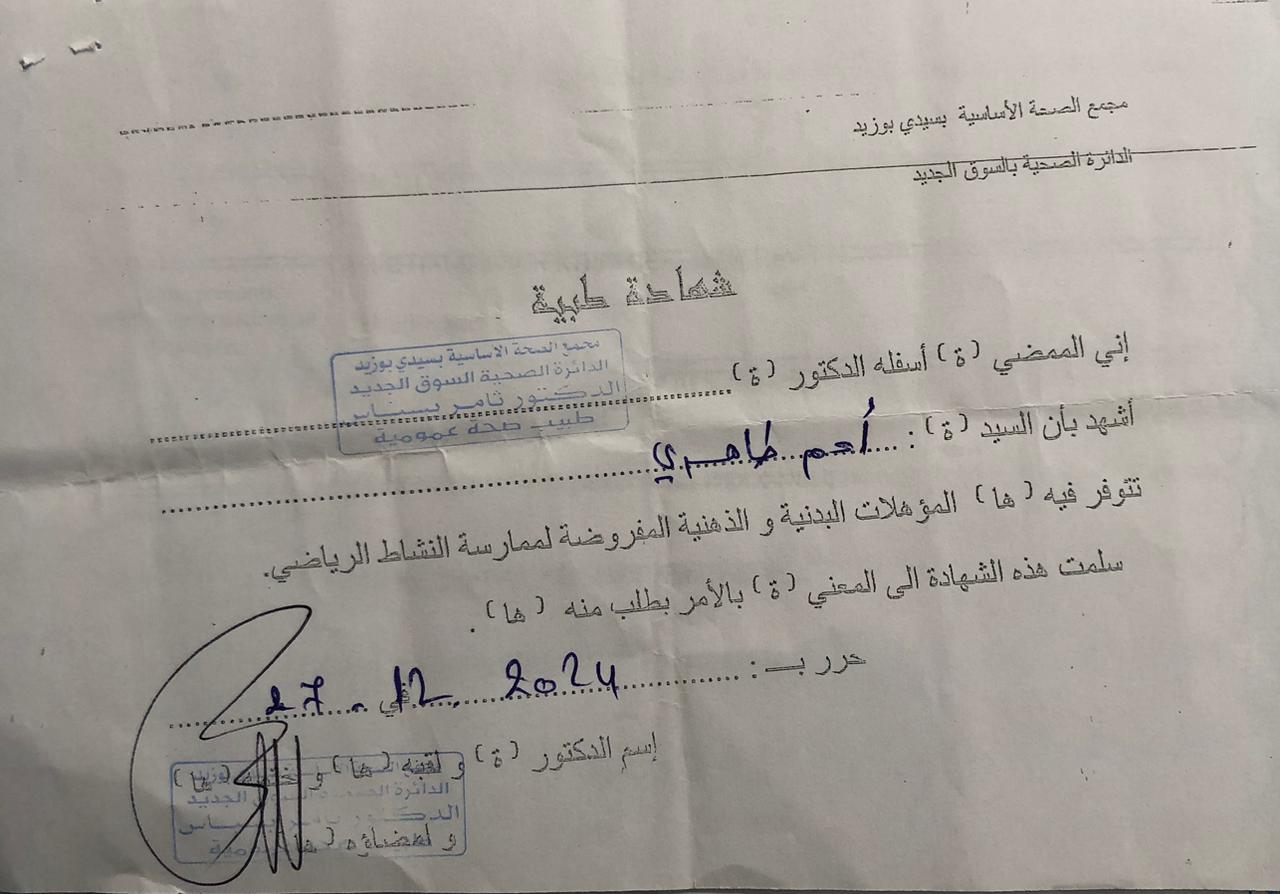 مجمع الصحة الأساسية بسيدي بوزيد
الدائرة الصحية بالسوق الجديد
شهادة طبية
إني الممضي (ة) أسفله الدكتور (ة)
مجمع الصحة الاساسية بسيدي بوزيد
الدائرة الصحية السوق الجديد
الدكتور ثامر بسباس
طبيب صحة عمومية
أشهد بأن السيد (ة) : أحم طاهري
تتوفر فيه (ها) المؤهلات البدنية و الذهنية المفروضة لممارسة النشاط الرياضي.
سلمت هذه الشهادة الى المعني (ة) بالأمر بطلب منه (ها) .
حرر بـ : في 27 . 12 . 2024
إسم الدكتور (ة) و لقبه (ها) و (ها)
و إمضاؤه (ها)
بوزيد
الدائرة الجديد
الدكتور بسباس